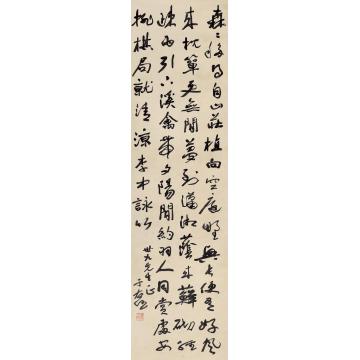 森〻移得自山莊植向空庭野興長便有好風
來枕簟更無閒夢到瀟湘蔭來蘚砌經
疎雨引下溪禽帶夕陽閒約羽人同賞處安
排棋局就清涼李中詠竹
世九先生正
于右任